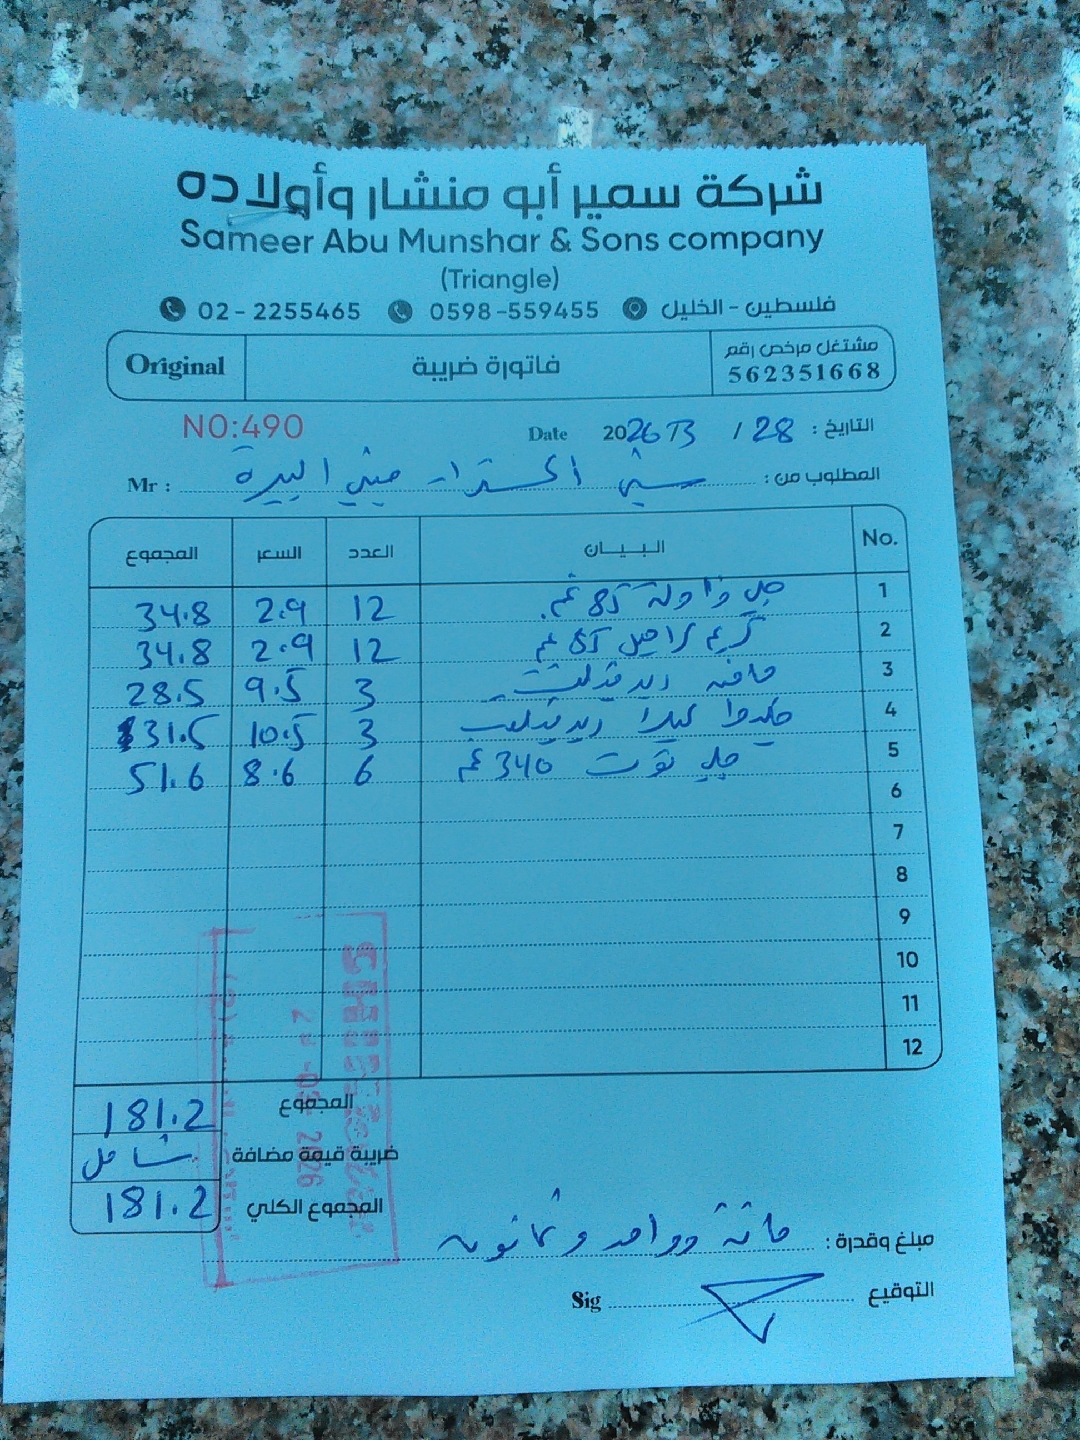 شركة سمير أبو منشار وأولاده
Sameer Abu Munshar & Sons company
(Triangle)
02-2255465 0598-559455 فلسطين - الخليل
Original فاتورة ضريبة مشتغل مرخص رقم
562351668
NO:490 Date 2026 / 3 / 28 التاريخ :
Mr : المطلوب من : البيرة
No. البيان العدد السعر المجموع
1 جلي 85 غم 12 2.9 34.8
2 كريم كراميل 85 غم 12 2.9 34.8
3 3 9.5 28.5
4 3 10.5 31.5
5 جلي توت 340 غم 6 8.6 51.6
6
7
8
9
10
11
12
المجموع 181.2
ضريبة قيمة مضافة شامل
المجموع الكلي 181.2
مبلغ وقدرة : مائة وواحد وثمانون
التوقيع Sig
03 2026